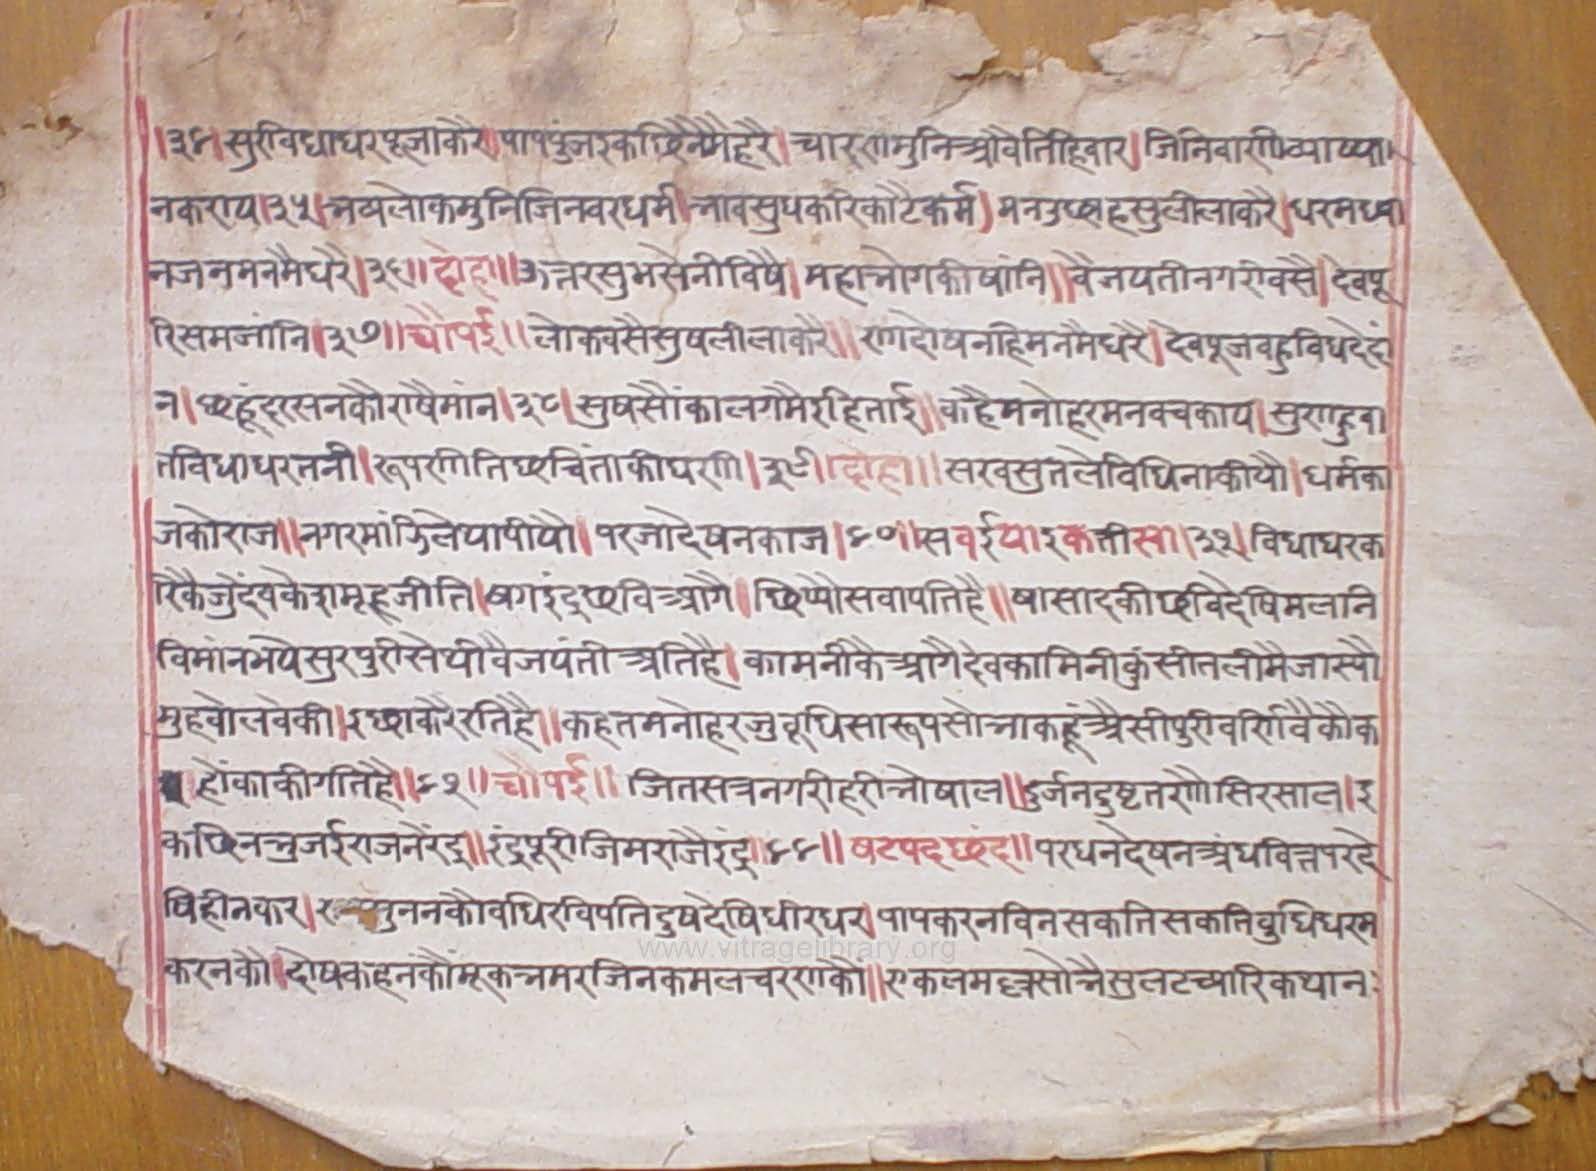 ।३४। सुरविद्याधरपूजाकरै। पापपुंजइकछिनमैहरै। चारणमुनिआवैतिहिवार। जिनिवाणीव्याष्या
नकराय।३५। भव्यलोकमुनिजिनवरधर्म। भावसुपकरिकाटैकर्म। मनउछाहसुलीलाकरै। धरमध्या
नजनमनमैधरै।३६॥ दोहा॥ ऊत्तरसुभसेनीविषै। महाभोगकीषांनि॥ वैजयतीनगरीवसै। देवपू
रिसमजांनि।३७॥ चौपई॥ लोकवसैसुषलीलाकरै॥ रागदोषनहिमनमैधरै। देवपूजवहुविधदेदां
न। छहूंदरसनकौराषैमांन।३८। सुषसौंकालगमैरहिताई॥ कहैमनोहरमनवचकाय।
तविद्याधरतनी। रूपरणीति चिंताकीघरणी।३९॥ दोहा॥ सरवसुतलेविधिनाकीयौ। धर्मका
जकोराज॥ नगरमांझिलेथापीयौ। परजादेषनकाज।४०॥ सवईयाइकतीसा।३१। विद्याधरक
रिकै जीति। षगइंदुछविआगै। छिप्यौसवापतिहै॥ षासादकीछविदेषिमलानि
विमांनभयेसुरपुरीसेथीवैजयंतीअतिहै। कामनीकैआगैदेवकामिनीकुंसीतलीमैजास्यौ
मुहवोलवेकी। इछाकरैरतिहै॥ कहतमनोहरजुवूधिसारूपसोभाकहूंअैसीपुरीवर्णिवैकौक
होंकाकीगतिहै॥४१॥ चौपई॥ जितसत्रनगरीहरीभोषाल॥ दुर्जनदुष्टतरणैसिरसाल। इ
कछिनभुजईराजनरेंद्र॥ इंद्रपूरीजिमराजैइंद्र॥४४॥ षटपदछंद॥ परधनदेषनअंधवित्तपरदे
षिहीनकर। सुननकौवधिरविपतिदुषदेषिधीरधर। पापकरनविनसकतिसकतिवुधिधरम
करनकौ। दोषकहनकौंमूकभमरजिनकमलचरणकौं॥ एकलमहत्रसोभैसुलटच्यारिकथान
www.vitragelibrary.org